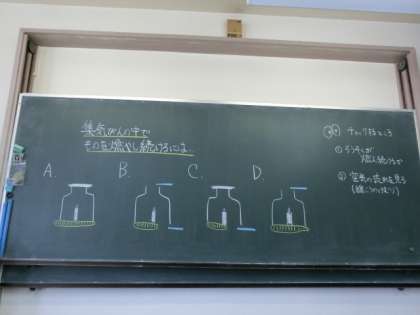 集気びんの中で
ものを燃やし続けるには…
A.
B.
C.
D.
チェックするところ
① ろうそくが
燃え続けるか
② 空気の流れを見る
(線こうのけむり)